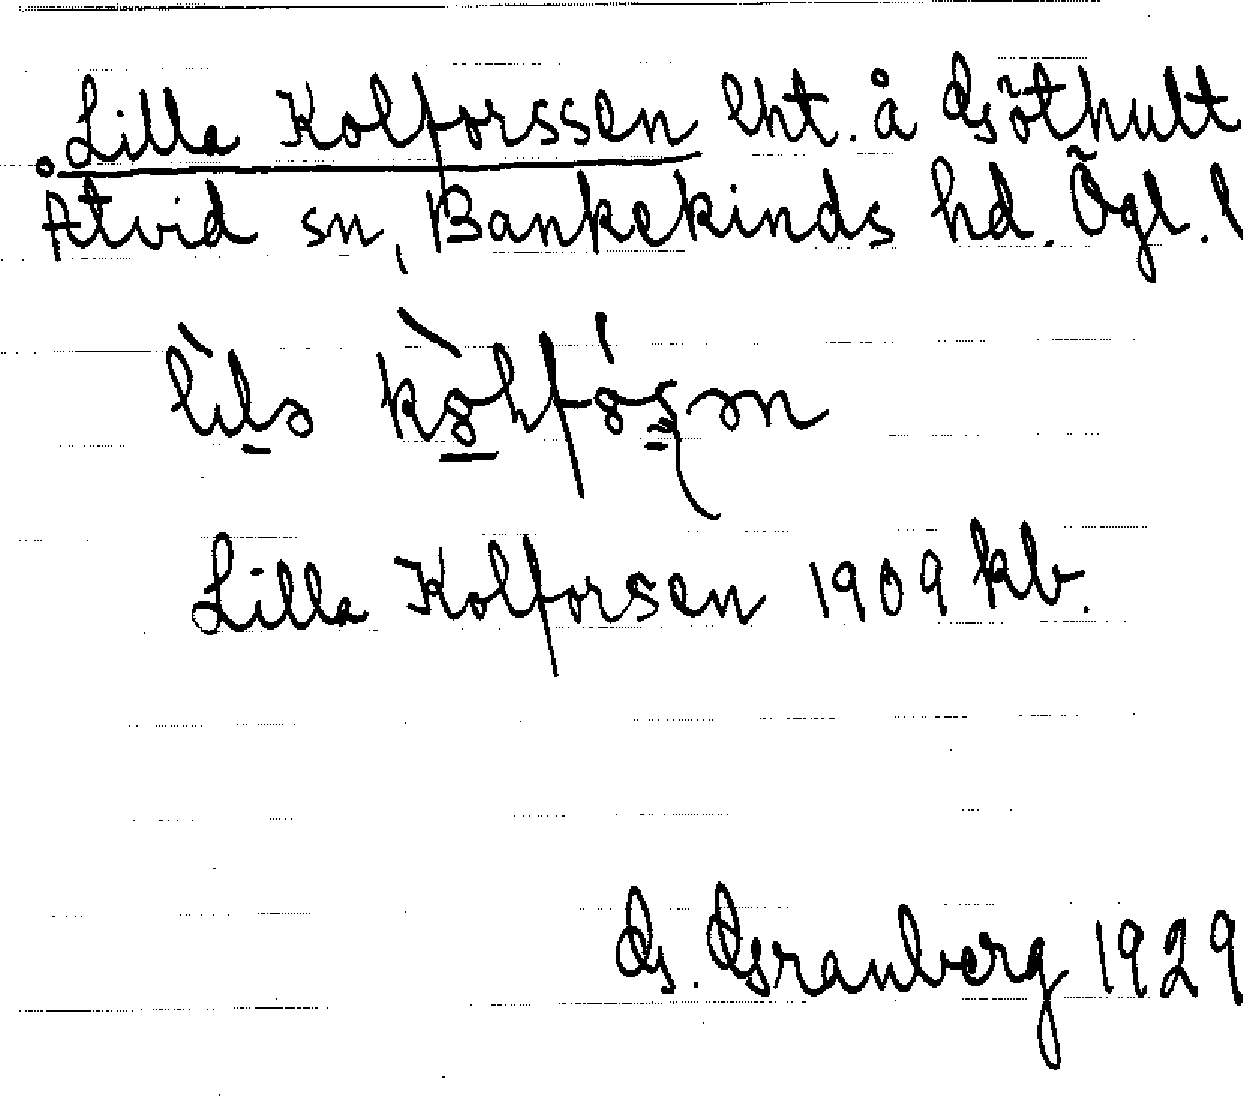 Lilla Kolforssen lht. å Göthult
Åtvid sn, Bankekinds hd. Ögl. l
Lilla Kolforsen 1909 kb.
G. Granberg 1929